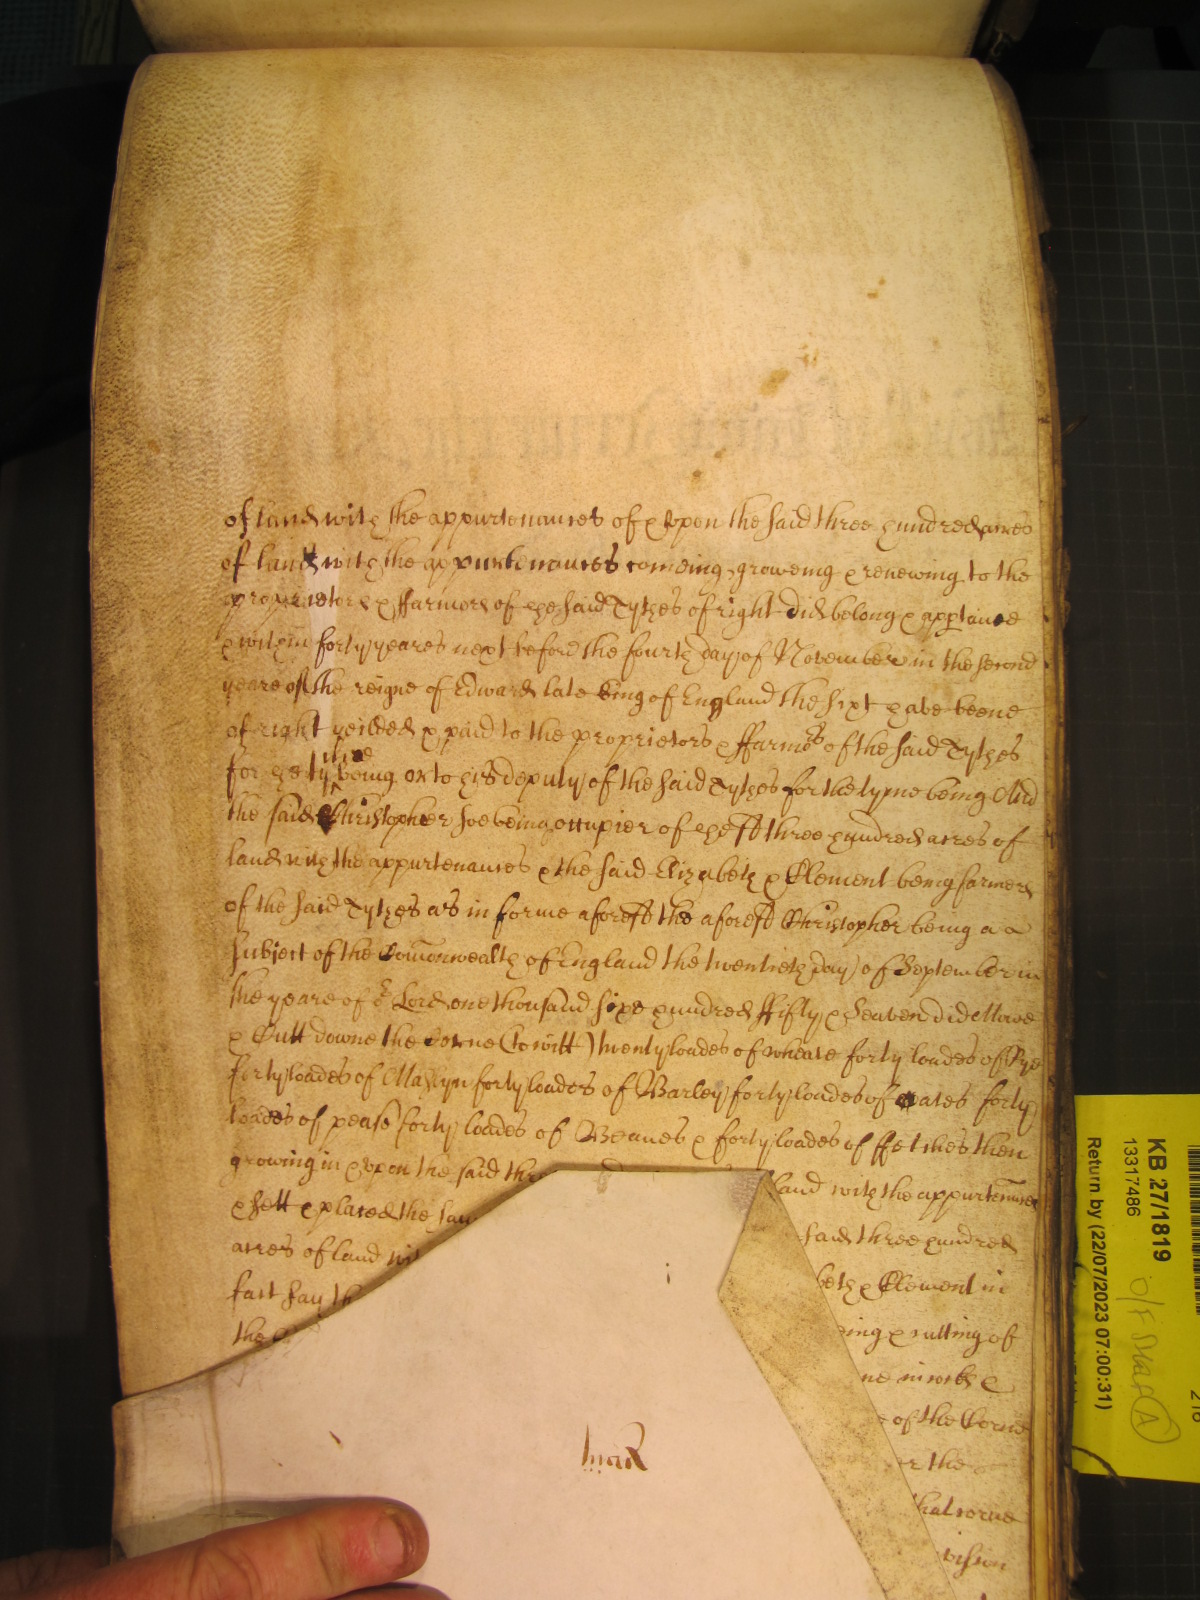 of land with the appurtenances of & vpon the said three hundred acres
of land with the appurtenances comeing groweing & renewing to the
proprietors & ffarmors of the said Tythes of right did belong & apptaine
& within forty yeares next before the fourth day of November in the second
yeare of the reigne of Edward late King of England the sixt have beene
of right yeilded & paid to the proprietors & ffarmors of the said Tythes
for the tyme being or to his deputy of the said Tythes for the tyme being And
the said Christopher soe being occupier of the sd three hundred acres of
land with the appurtenances & the said Elizabeth & Clement being farmers
of the said Tythes as in forme aforesd the aforesd Christopher being a
subject of the Comonwealth of England the twentieth day of September in
the yeare of or Lord one thousand sixe hundred ffifty & Seaven did Mowe
& Cutt downe the Corne (to witt) twenty loades of wheate forty loades of Rye
forty loades of Maslyn forty loades of Barley forty loades of oates forty
loades of pease forty loades of Beanes & forty loades of ffetches then
growing in & vpon the said thr land with the appurtennces
& sett & placed the sa said three hundred
acres of land wi
fact say th beth & Clement in
the eing & cutting of
ne in iocks &
of the Corne
the
that corne
vision
KB 27/1819
13317486
Return by (22/07/2023 07:00:31)